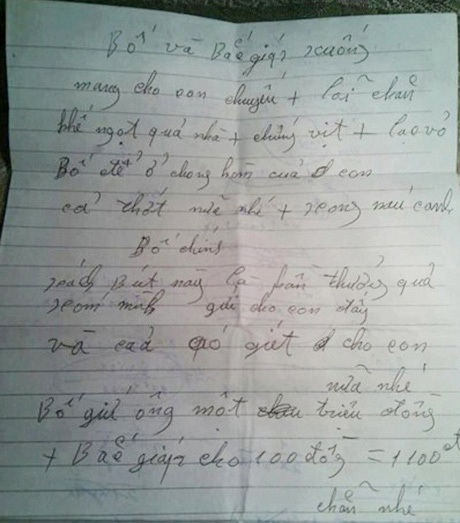 Bố và Baế giáp xuống
mang cho con chuyến + lai chăn
khế ngọt quả nhã + chứng vịt + lạo vỏ
Bố để ở chong hòn của con
cả thớt nữa nhé + xeong nấu canh
Bố chính
sách Bút này là phần thưởng quả
xeom mình gửi cho con đấy
và cả giét cho con
nữa nhé
Bố gửi ông một triệu đồng
+ Baế giáp cho 100 đồng = 1100đ
chẵn nhé